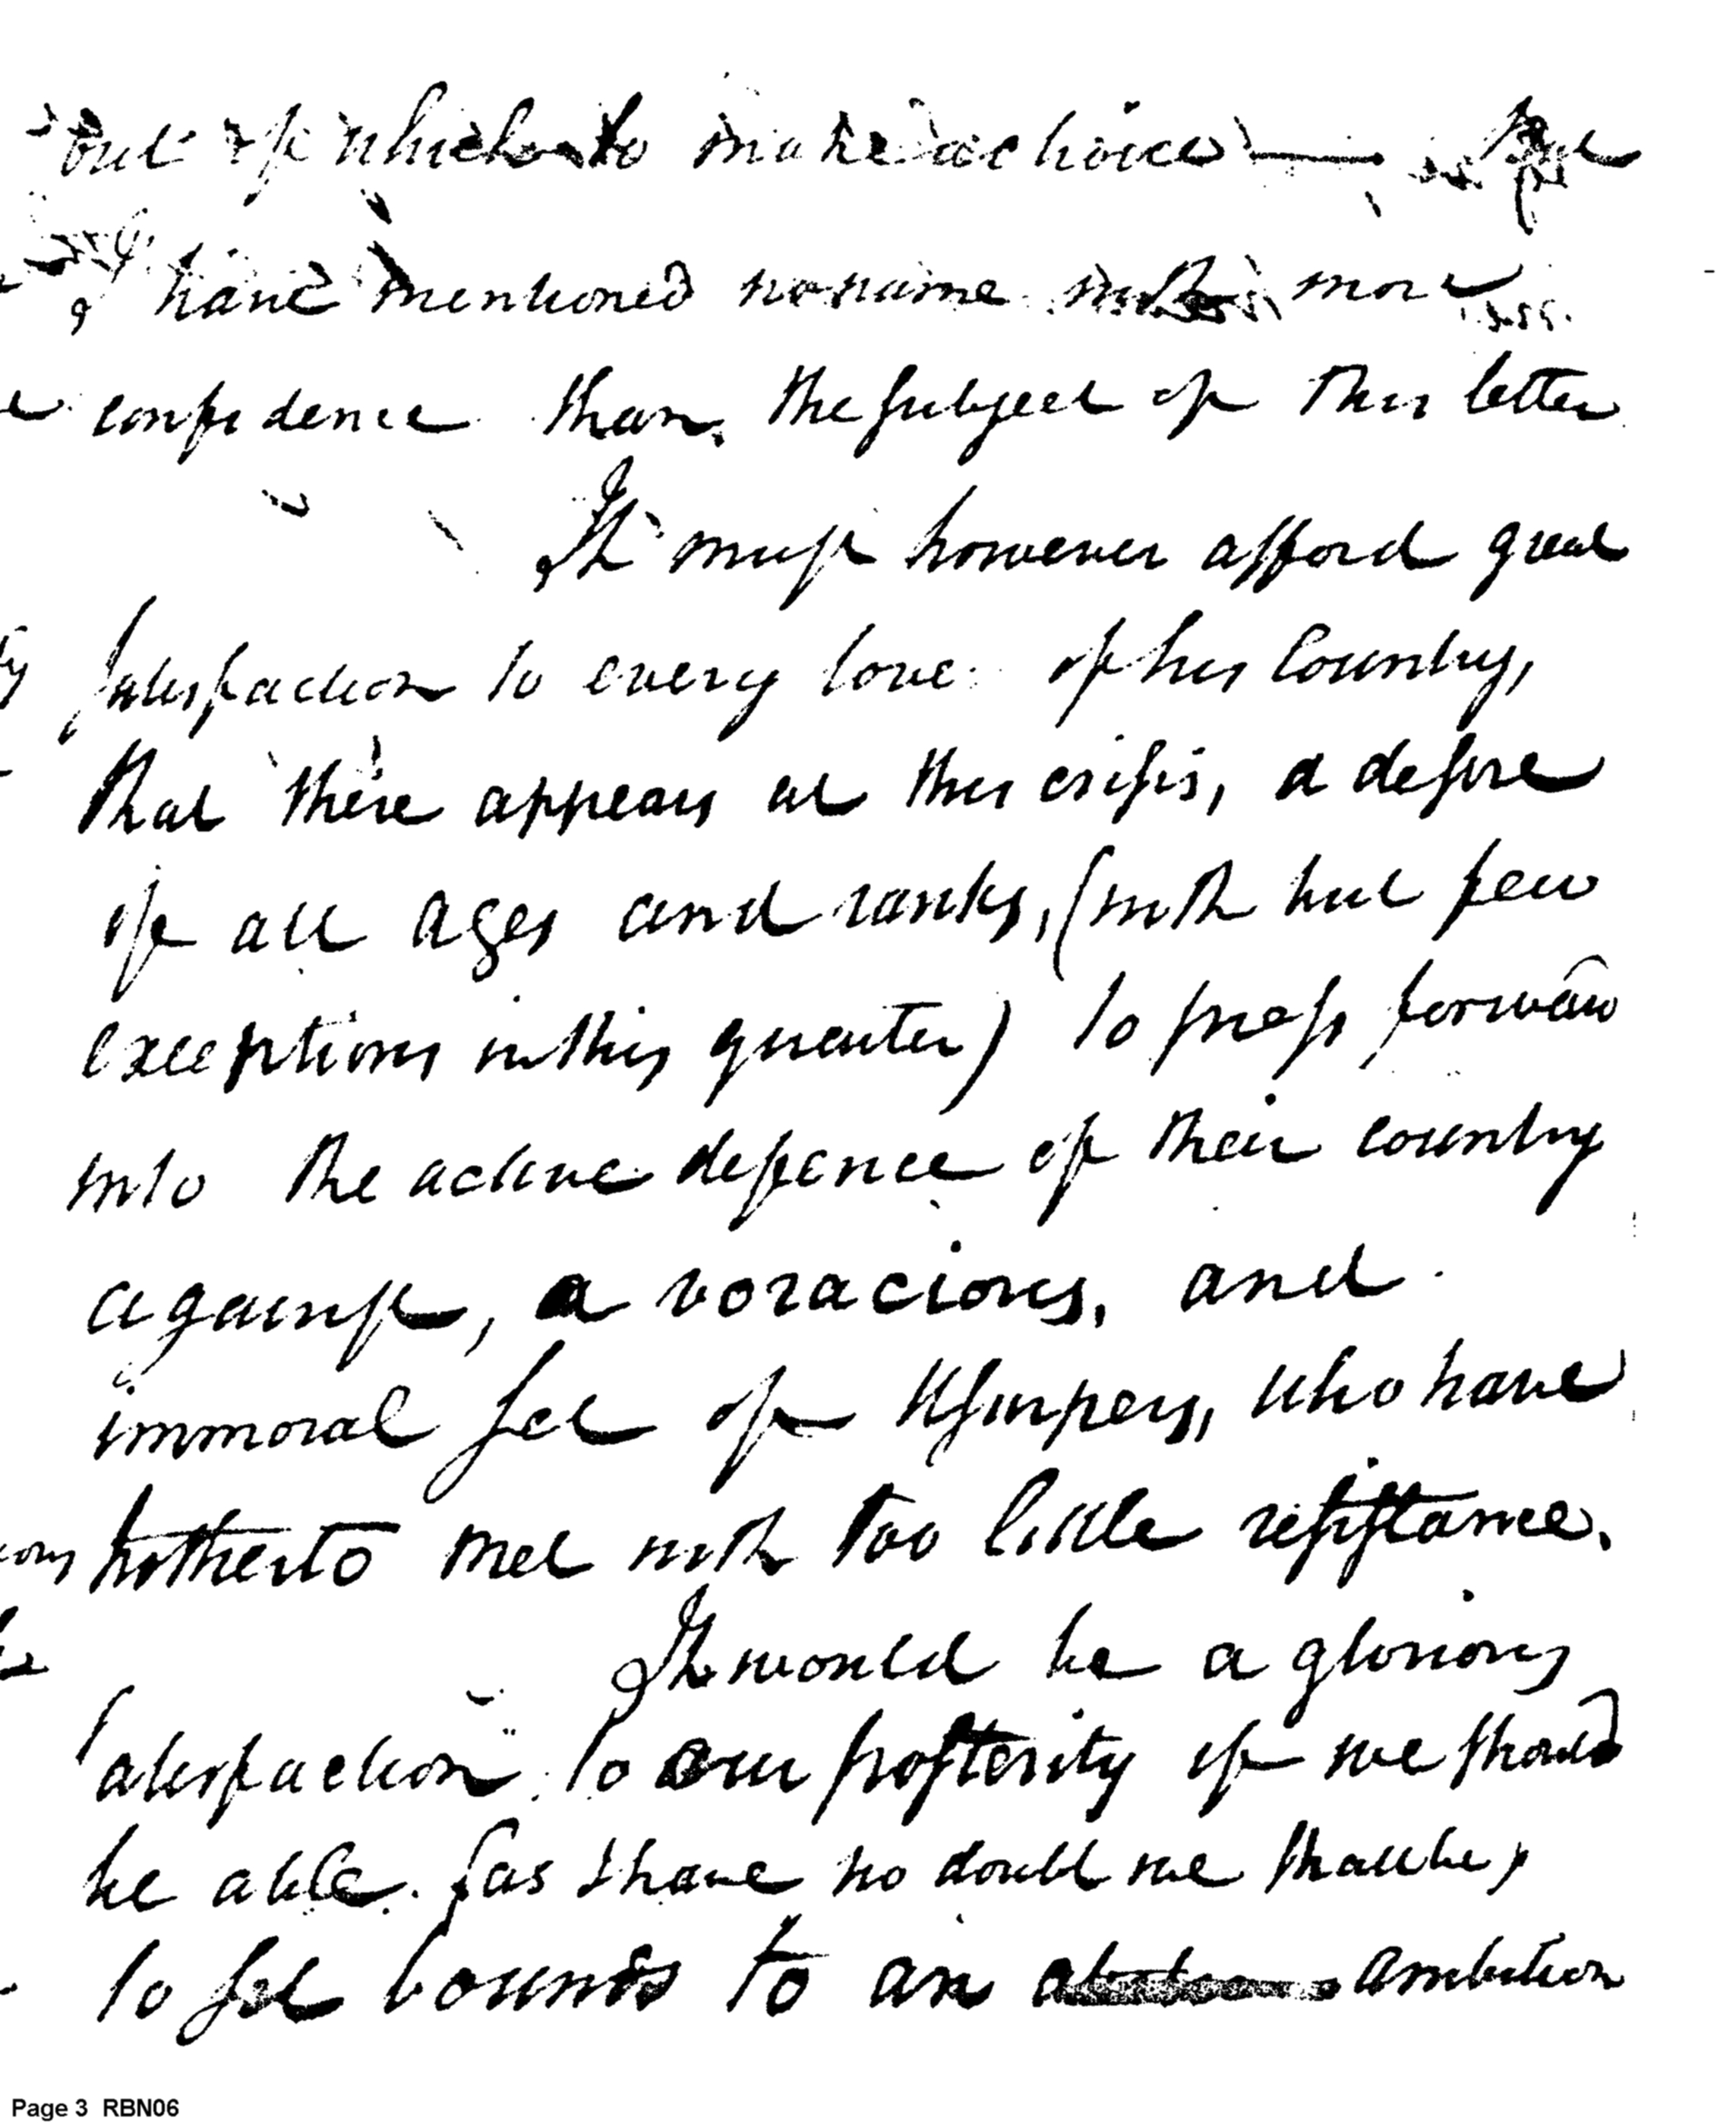 out of which to make a choice —
I have mentioned no name with more
confidence than the subject of this letter
It must however afford great
satisfaction to every love of his Country,
that there appears at this crisis, a desire
of all ages and ranks, (with but few
exceptions in this quarter) to press forward
into the active defence of their country
against, a voracious, and
immoral set of Usurpers, who have
hitherto met with too little resistance.
It would be a glorious
satisfaction to our posterity if we should
be able (as I have no doubt we shall be)
to set bounds to an ambition
Page 3 RBN06